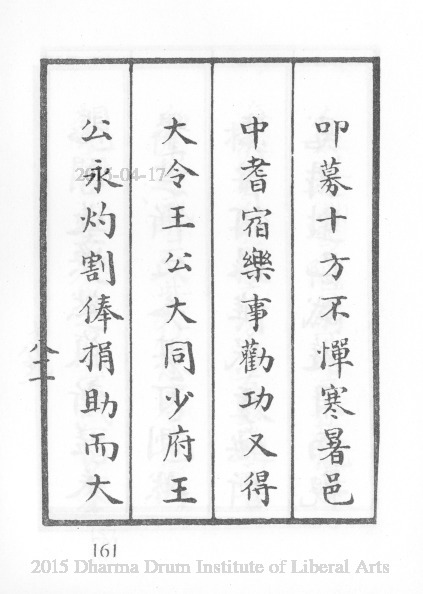 叩募十方不憚寒暑邑
中耆宿樂事勸功又得
大令王公大同少府王
公永灼割俸捐助而大
八二
161
2015 Dharma Drum Institute of Liberal Arts